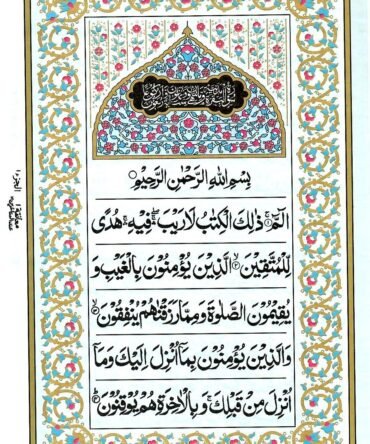 بِسْمِ اللهِ الرَّحْمٰنِ الرَّحِيْمِ
الٓمّٓ ۚ ذٰلِكَ الْكِتٰبُ لَا رَيْبَ ۛ فِيْهِ ۛ هُدًى
لِّلْمُتَّقِيْنَ ۙ الَّذِيْنَ يُؤْمِنُوْنَ بِالْغَيْبِ وَ
يُقِيْمُوْنَ الصَّلٰوةَ وَمِمَّا رَزَقْنٰهُمْ يُنْفِقُوْنَ ۙ
وَالَّذِيْنَ يُؤْمِنُوْنَ بِمَآ اُنْزِلَ اِلَيْكَ وَمَآ
اُنْزِلَ مِنْ قَبْلِكَ ۚ وَبِالْاٰخِرَةِ هُمْ يُوْقِنُوْنَ ؕ
الجزء ١
معانقة ١